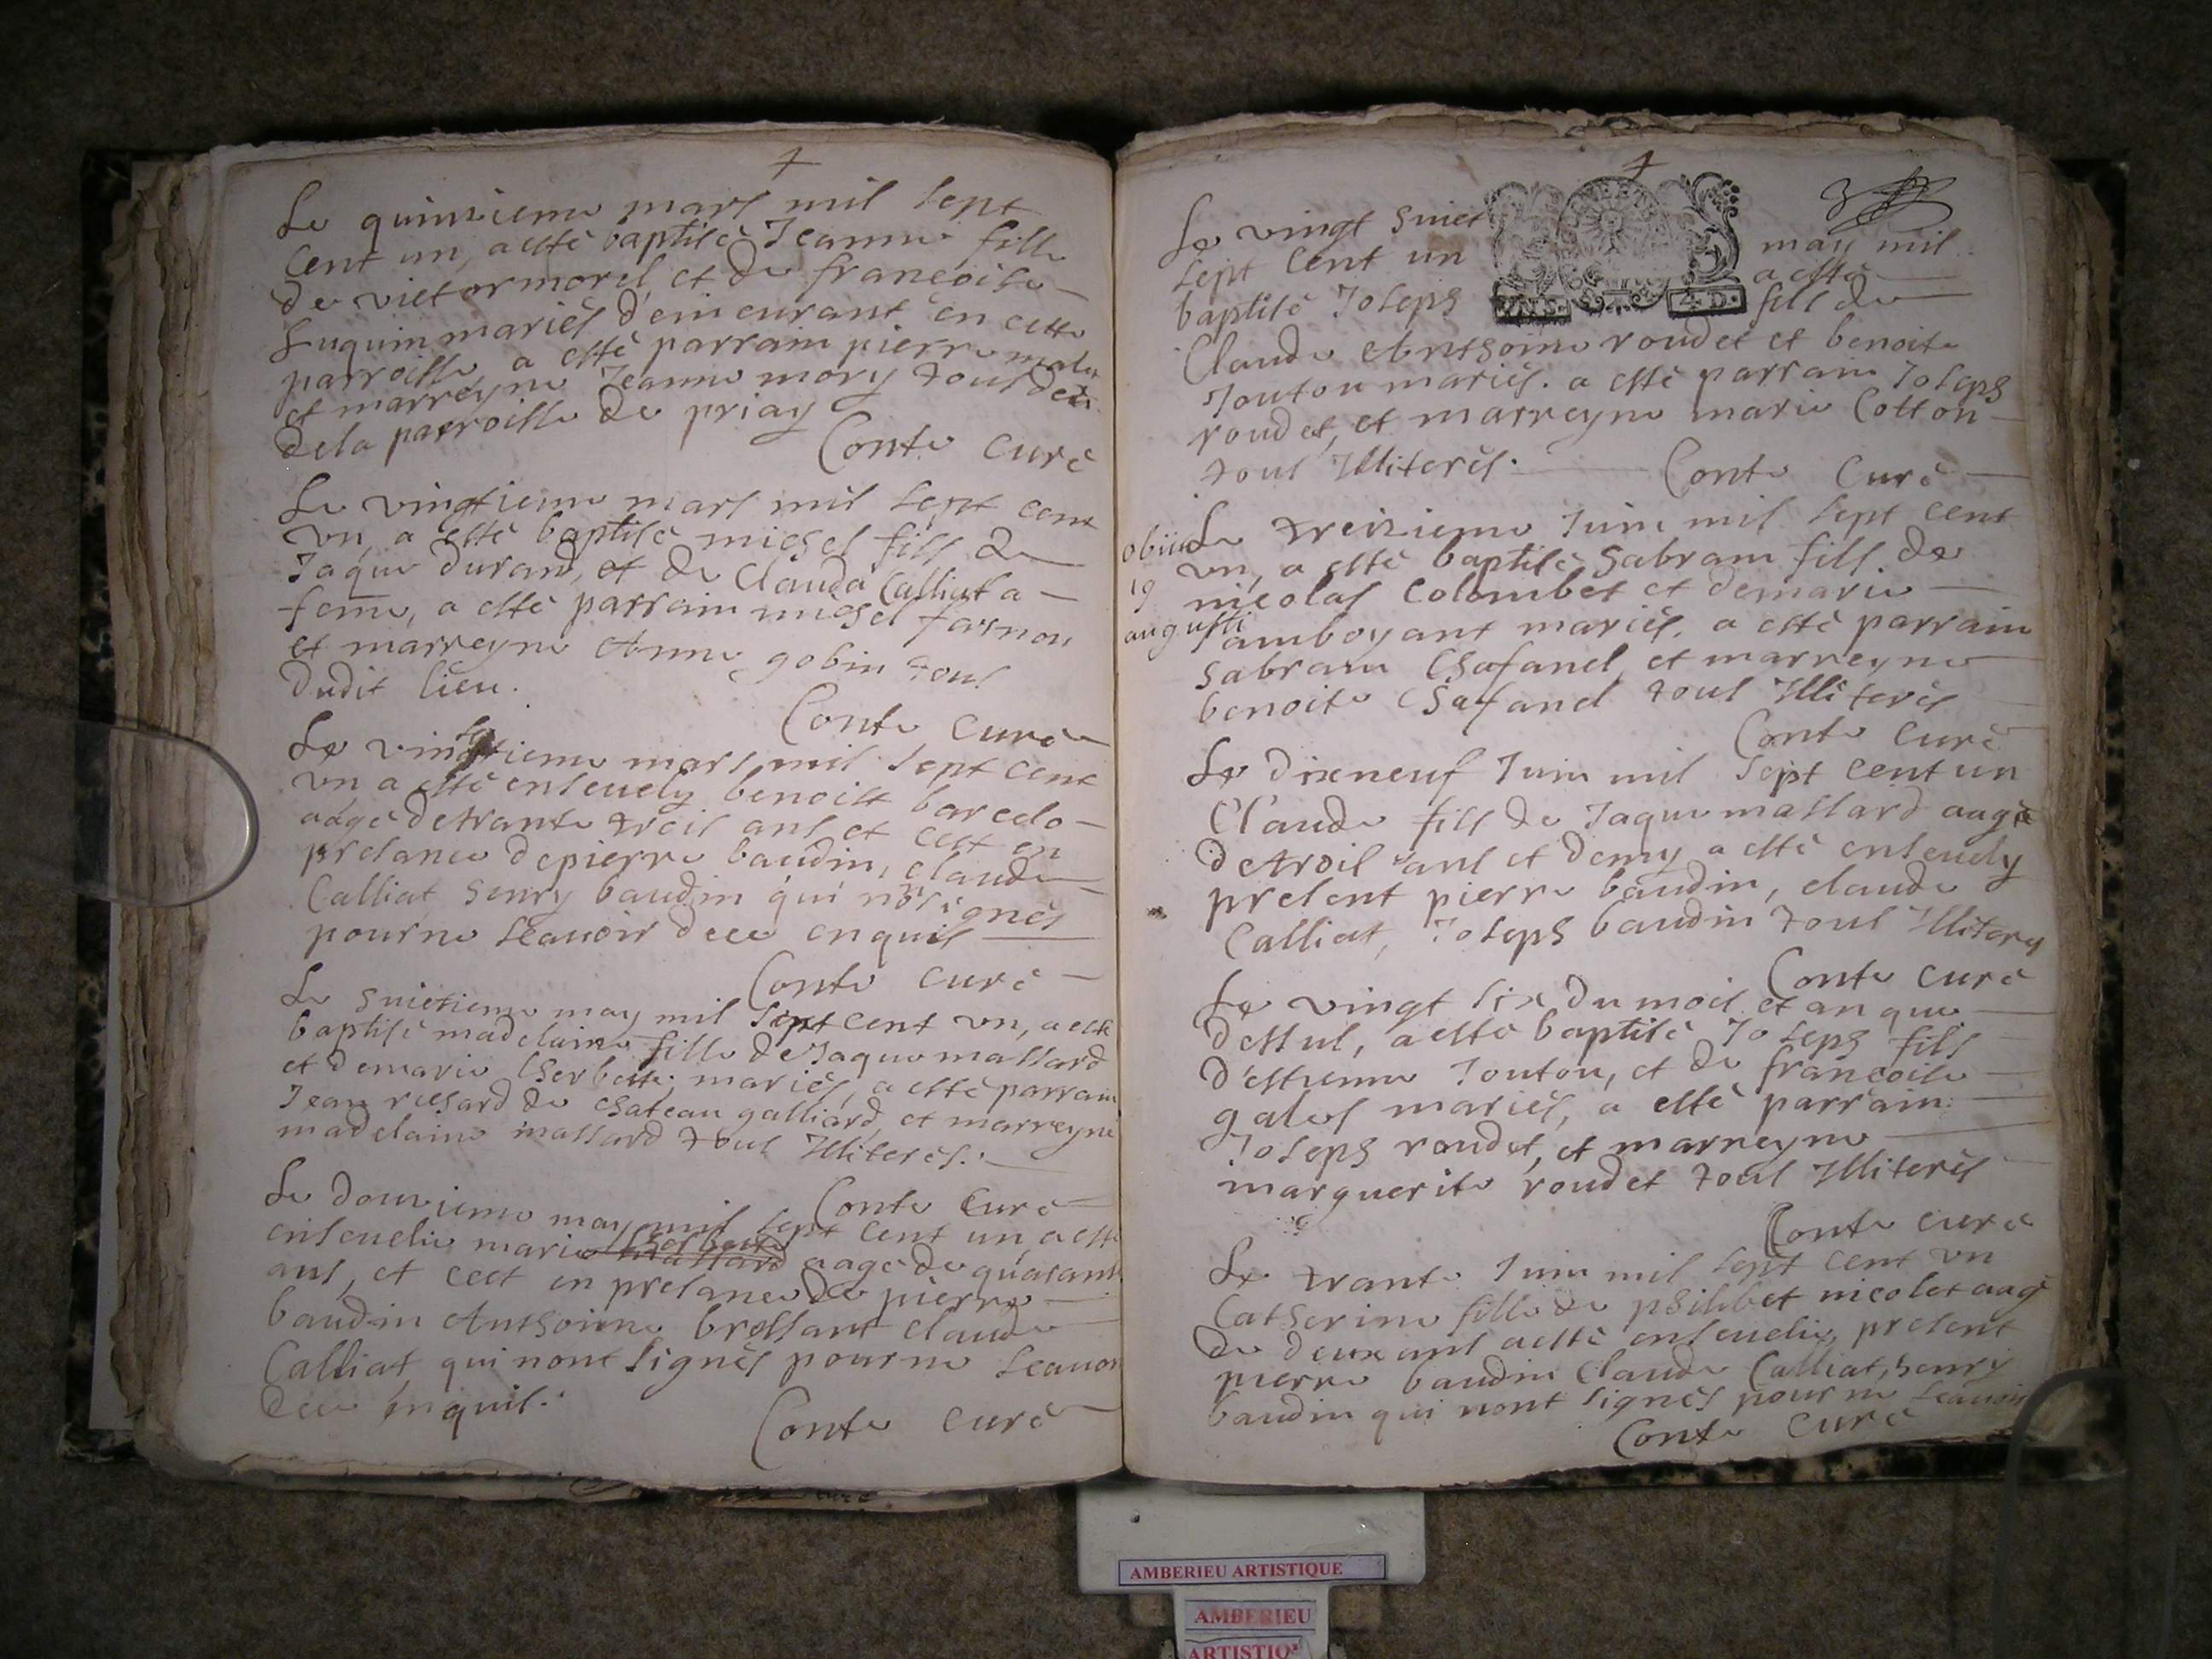 Le quinzieme mars mil sept
cent un, a esté baptisé Jeanne fille
de victor morel et de francoise
Fuguin mariés demeurant en cette
parroisse a esté parrain pierre
et marreyne Jeanne mory tous deux
dela parroisse de priay
Conte curé
Le vingtieme mars mil sept cent
vn, a esté baptisé michel fils de
Jaque durand, et de Clauda Calliat sa
feme, a esté parrain michel farnon
et marreyne Anne gobin tous
dudit lieu.
Conte curé
Le vingtieme mars mil sept cent
vn, a esté enseuely benoist barcelo
aagé detrante trois ans et cest en
presance depierre baudin, claude
Calliat henry baudin qui nont signés
pourne scauoir dece enquis
Conte curé
Le huictieme may mil sept cent vn, a esté
baptisé madelaine fille de Jaque massard
et demarie Cherbette mariés, a esté parrain
Jean richard de chateau galliard, et marreyne
madelaine massard tous Illiterés.
Conte curé
Le douzieme may mil sept cent un a esté
enseuelie marie Cherbette massard aagé de quarante
ans, et cest en presance de pierre
baudin Anthoine brossant claude
Calliat qui nont signés pourne scauoir
dece enquis.
Conte curé
Le vingt huict may mil
sept cent un a esté
baptisé Joseph fils de
Claude Anthoine roudet et benoite
Jouton mariés. a esté parrain Joseph
roudet, et marreyne marie Cotton
tous Illiterés.
Conte Curé
obiit
19
augusti
Le treizieme Juin mil sept cent
vn, a esté baptisé habram fils de
nicolas Colombet et demarie
Jamboyant mariés. a esté parrain
habram Chafanel et marreyne
benoite Chafanel tous Illiterés
Conte curé
Le dixneuf Juin mil sept cent un
Claude fils de Jaque massard aagé
detrois ans et demy a esté enseuely
present pierre baudin, claude
Calliat, Joseph baudin tous Illiteres
Conte curé
Le vingt six du mois et an que
dessus, a esté baptisé Joseph fils
d'estienne Jouton, et de francoise
gales mariés, a esté parrain
Joseph roudet, et marreyne
marguerite roudet tous Illiterés
Conte curé
Le trante Juin mil sept cent vn
Catherine fille de philibet nicolet aagé
de deux ans a esté enseuelie, present
pierre baudin Claude Calliat, henry
baudin qui nont signés pourne scauoir
Conte curé
4 D.
AMBERIEU ARTISTIQUE
AMBERIEU
ARTISTIQ